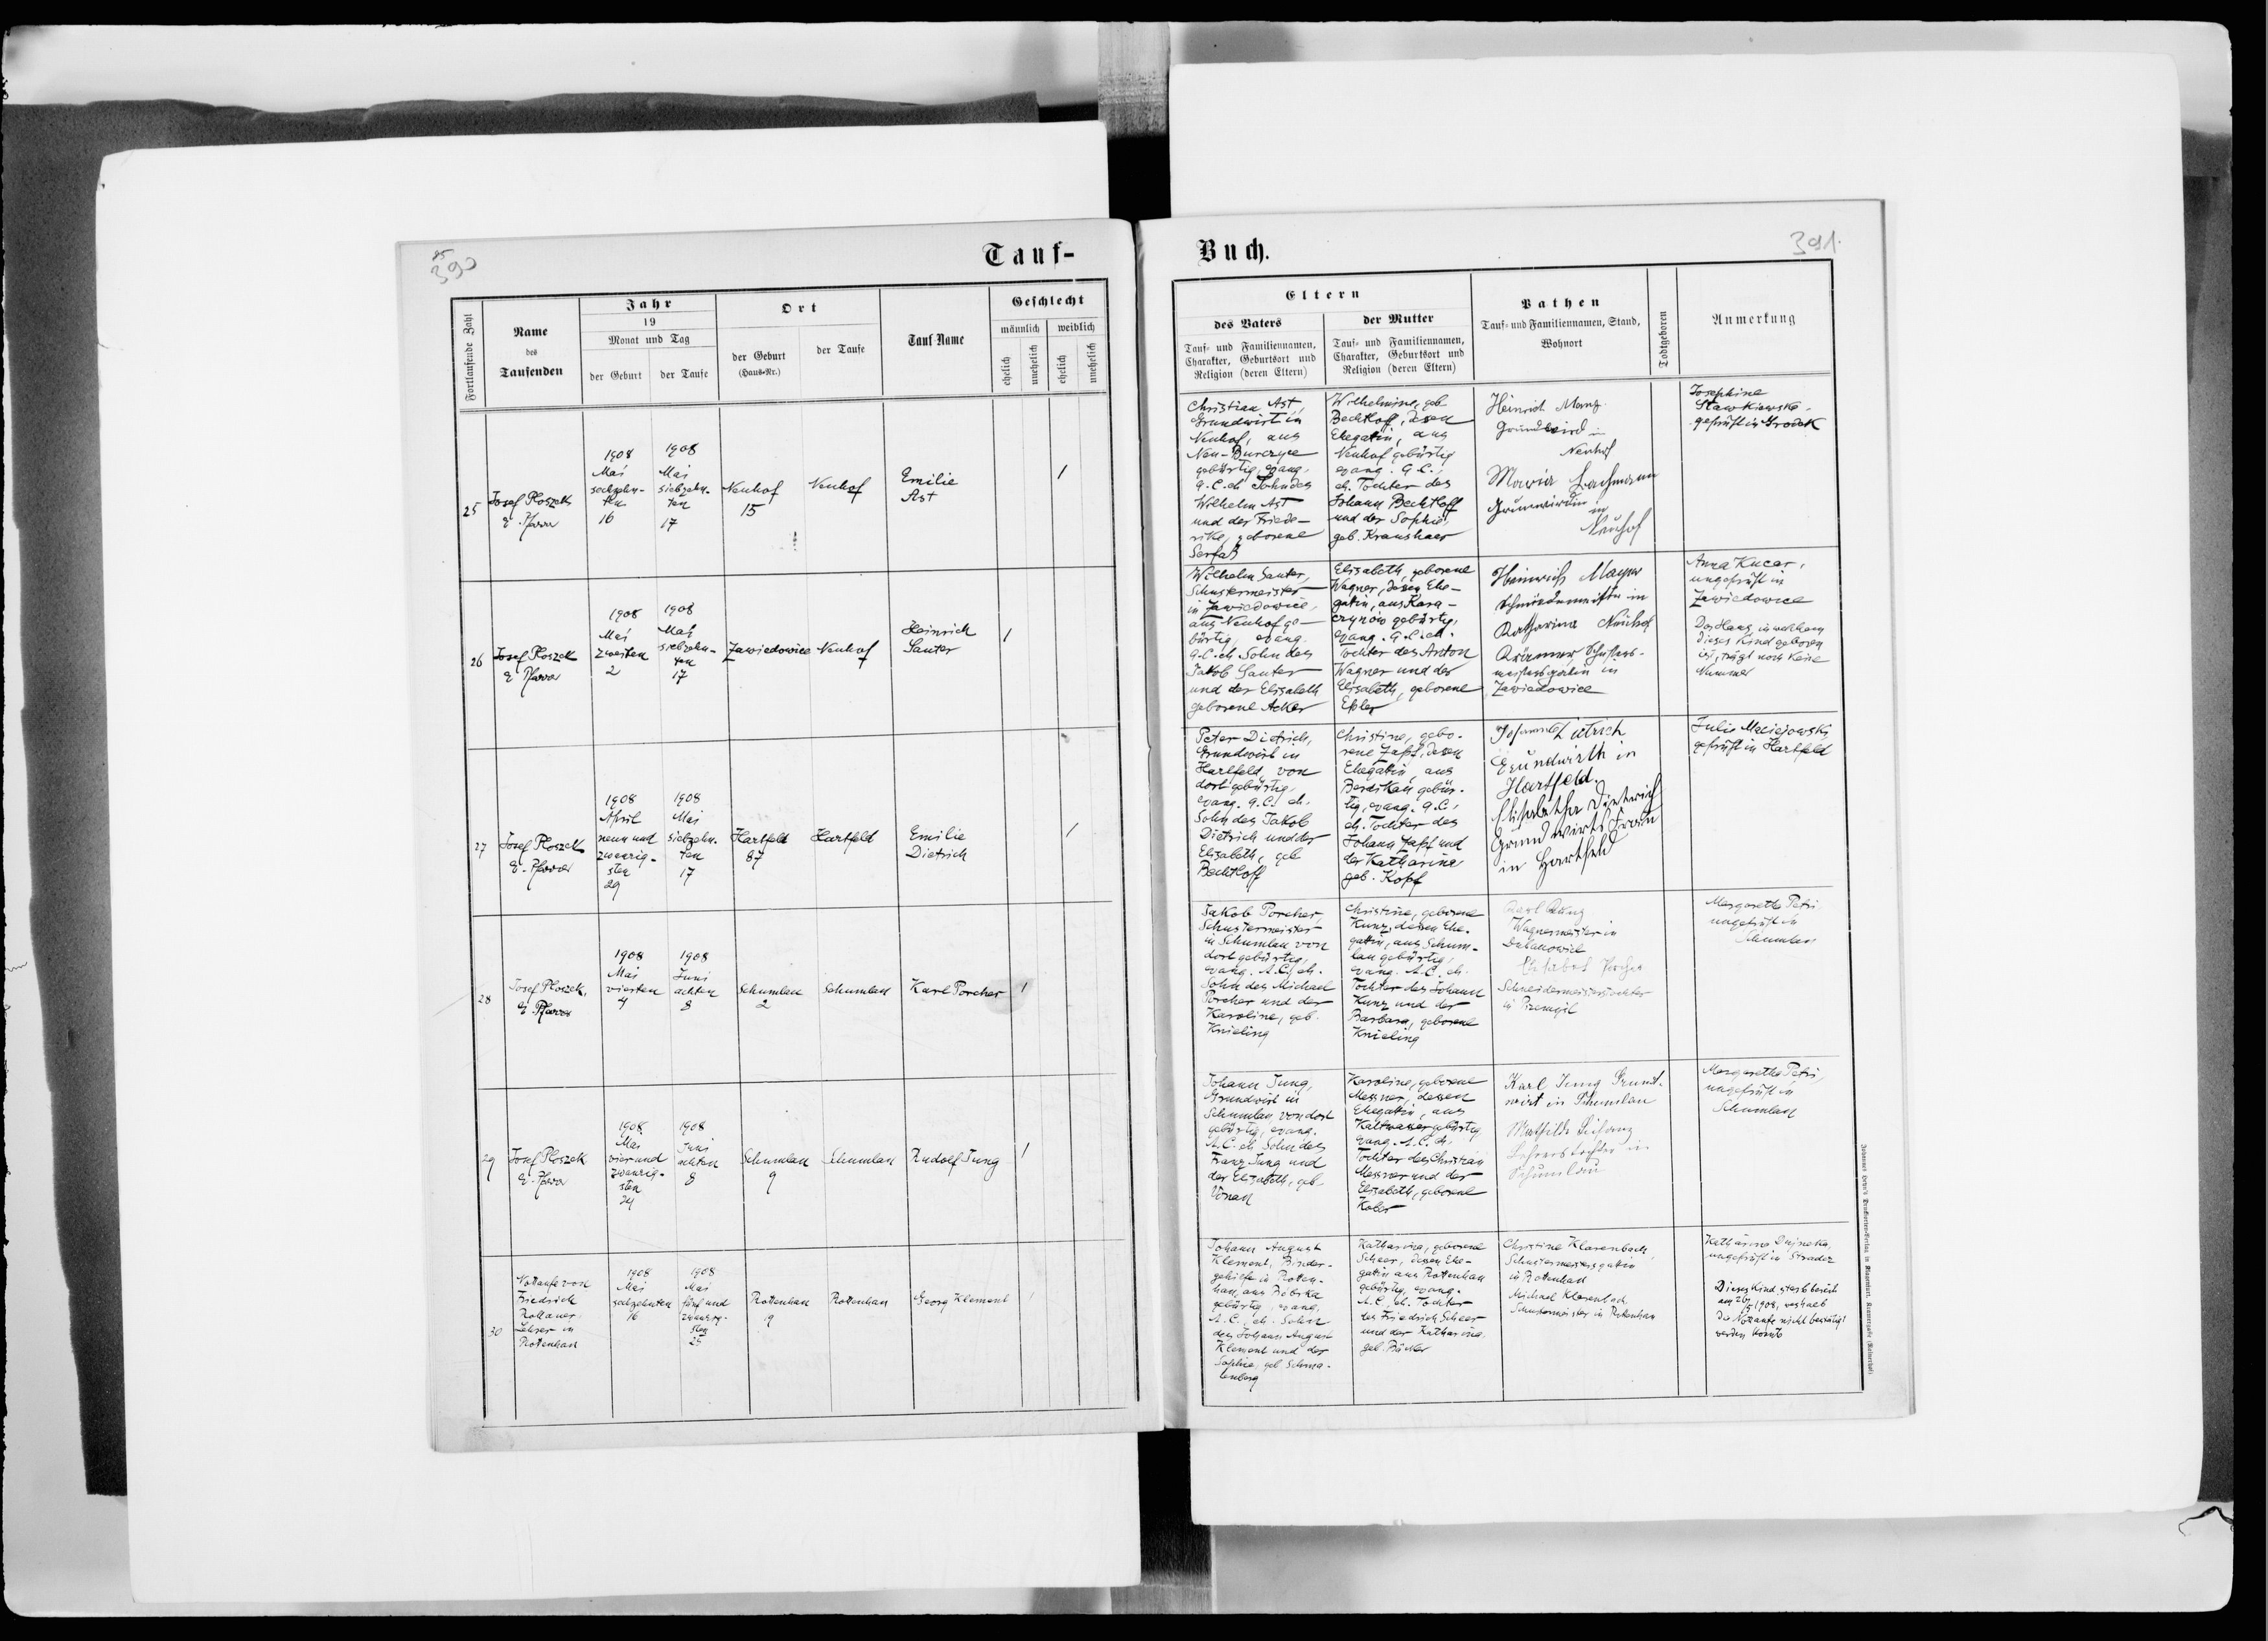 390
Tauf-
Fortlaufende Zahl
Name
des
Taufenden
Jahr
19
Monat und Tag
der Geburt
der Taufe
Ort
der Geburt
(Haus-Nr.)
der Taufe
Tauf-Name
Geschlecht
männlich
weiblich
ehelich
unehelich
ehelich
unehelich
25
Josef Ploszek
E. Pfarrer
1908
Mai
sechzehn-
ten
16
1908
Mai
siebzehn-
ten
17
Neuhof
15
Neuhof
Emilie
Ast
1
26
Josef Ploszek
E. Pfarrer
1908
Mai
zweiten
2
1908
Mai
siebzehn-
ten
17
Zawiedowice
Neuhof
Heinrich
Sauter
1
27
Josef Ploszek
E. Pfarrer
1908
April
neun und
zwanzig-
sten
29
1908
Mai
siebzehn-
ten
17
Hartfeld
87
Hartfeld
Emilie
Dietrich
1
28
Josef Ploszek,
E. Pfarrer
1908
Mai
vierten
4
1908
Juni
achten
8
Schumlau
2
Schumlau
Karl Porcher
1
29
Josef Ploszek
E. Pfarrer
1908
Mai
vier und
zwanzig-
sten
24
1908
Juni
achten
8
Schumlau
9
Schumlau
Rudolf Jung
1
30
Nottaufe von
Friedrich
Lehrer in
Rottenhan
1908
Mai
sechzehnten
16
1908
Mai
fünf und
zwanzig-
sten
25
Rottenhan
9
Rottenhan
Georg Klement
1
Buch.
391.
Eltern
des Vaters
Tauf- und Familiennamen,
Charakter, Geburtsort und
Religion (deren Eltern)
der Mutter
Tauf- und Familiennamen,
Charakter, Geburtsort und
Religion (deren Eltern)
Pathen
Tauf- und Familiennamen, Stand,
Wohnort
Todtgeboren
Anmerkung
Christian Ast,
Grundwirt in
Neuhof, aus
Neu-Burczyce
gebürtig, evang.
A.C. eh. Sohn des
Wilhelm Ast
und der Friede-
rike, geborene
Wilhelmine, geb.
Bechtloff, dessen
Ehegatin, aus
Neuhof gebürtig
evang. A.C.,
eh. Tochter des
Johann Bechtloff
und der Sophie,
geb. Kraushaar
Heinrich Manz
Grundwird in
Neuhof
Maria Bachmann
in
Neuhof
Josephine
geprüft in Grodek
Wilhelm Sauter,
Schustermeister
in Zawiedowice,
aus Neuhof ge-
bürtig, evang.
A.C. eh. Sohn des
Jakob Sauter
und der Elisabeth
geborene Acker
Elisabeth, geborene
Wagner, dessen Ehe-
gatin, aus Kara-
czynow gebürtig,
evang. A.C. eh.
Tochter des Anton
Wagner und der
Elisabeth, geborene
Heinrich Mayer
in
Katharina Neuhof
in
Zawiedowice
Anna Kucar,
ungeprüft in
Zawiedowice
Das Haus, in welchem
dieses Kind geboren
ist, trägt noch keine
Nummer
Peter Dietrich,
Grundwirt in
Hartfeld, von
dort gebürtig,
evang. A.C. eh.
Sohn des Jakob
Dietrich und der
Elisabeth, geb.
Bechtloff
Christine, gebo-
rene Zapf, dessen
Ehegatin, aus
Berdikau gebür-
tig, evang. A.C.,
eh. Tochter des
Johann Zapf und
der Katharina
geb. Kopf
Grundwirth in
Hartfeld.
Elisabetha Dieterich
Grundwirts Frau
in Hartfeld
Julie Maciejowski
geprüft in Hartfeld
Jakob Porcher,
Schustermeister
in Schumlau von
dort gebürtig,
evang. A.C., eh.
Sohn des Michael
Porcher und der
Karoline, geb.
Knieling
Christine, geborene
Kunz, dessen Ehe-
gatin, aus Schum-
lau gebürtig,
evang. A.C. eh.
Tochter des Johann
Kunz und der
Barbara, geborene
Knieling
Karl Kunz
Wagnermeister in
Elisabet Porcher
Schneidermeisterstochter
in
Margarethe Petri
ungeprüft in
Schumlau
Johann Jung,
Grundwirt in
Schumlau von dort
gebürtig, evang.
A.C. eh. Sohn des
Franz Jung und
der Elisabeth, geb.
Karoline, geborene
Messner, dessen
Ehegatin, aus
Kaltwasser gebürtig
evang. A.C. eh.
Tochter des Christian
Messner und der
Elisabeth, geborene
Koler
Karl Jung Grund-
wirt in Schumlau
Mathilde
Lehrerstochter in
Schumlau
Margarethe Petri,
ungeprüft in
Schumlau
Johann August
Klement, Binder-
gehilfe in Rotten-
han, aus Bóbrka
gebürtig, evang.
A.C., eh. Sohn
des Johann August
Klement und der
Sophie, geb. Schma-
lenberg
Katharina, geborene
Scheer, dessen Ehe-
gatin aus Rottenhan
gebürtig, evang.
A.C., eh. Tochter
des Friedrich Scheer
und der Katharina,
geb. Bäcker
Christine Klarenbach,
Schustermeistersgatin
in Rottenhan
Michael Klarenbach
Schustermeister in Rottenhan
Katharina Dujneka,
ungeprüft in Stradcz
Dieses Kind starb bereits
am 20/5 1908, weshalb
die Nottaufe nicht bestätigt
werden konnte